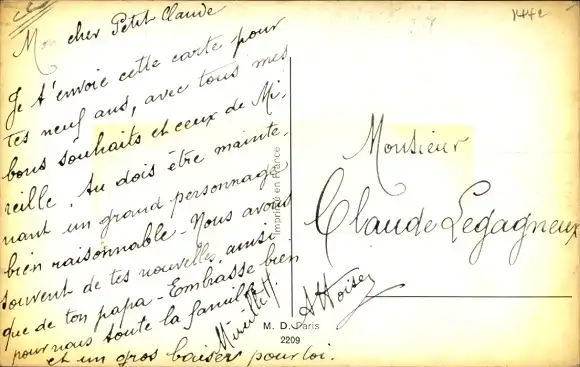 Mon cher Petit Claude
Je t'envoie cette carte pour
tes neuf ans, avec tous mes
bons souhaits et ceux de Mi-
reille. Tu dois être mainte-
nant un grand personnage
bien raisonnable. Nous avons
souvent de tes nouvelles, ainsi
que de ton papa - Embrasse bien
pour nous toute la famille
et un gros baiser pour toi.
Mireille H.
Monsieur
Claude Legagneux
Imprimé en France
M. D. Paris
2209